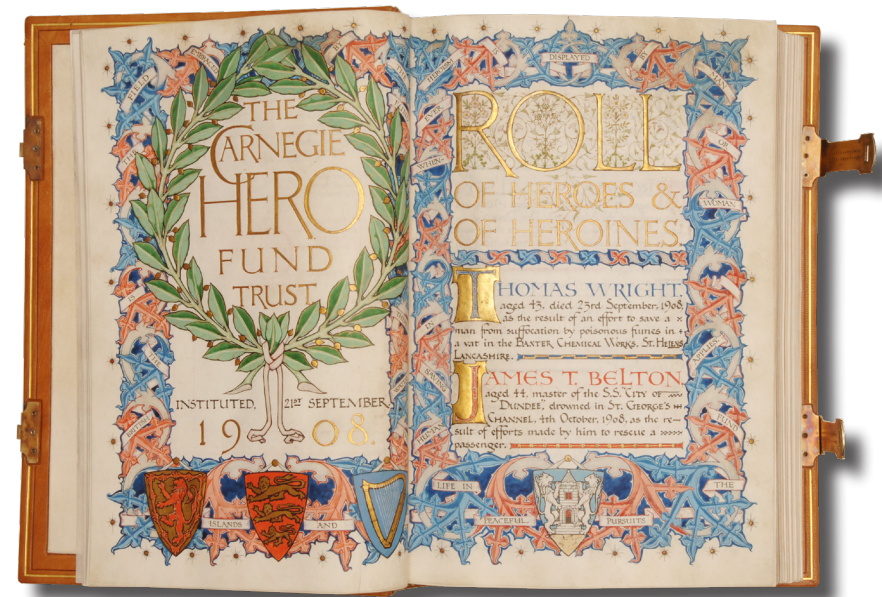 THE
CARNEGIE
HERO
FUND
TRUST
INSTITUTED, 21ST SEPTEMBER,
1908.
FIELD
EMBRACED
BY
IS
THE
BRITISH
ISLANDS
AND
ROLL
OF HEROES &
OF HEROINES
THOMAS WRIGHT,
aged 43, died 23rd September, 1908,
as the result of an effort to save a
man from suffocation by poisonous fumes in
a vat in the BAXTER CHEMICAL WORKS, ST. HELENS
LANCASHIRE.
JAMES T. BELTON,
aged 44, master of the S.S. "CITY OF
DUNDEE", drowned in ST. GEORGE'S
CHANNEL, 4th October, 1908, as the re-
sult of efforts made by him to rescue a
passenger.
WHEN-
EVER
HEROISM
DISPLAYED
BY
MAN
OR
WOMAN
IN
SAVING
HUMAN
LIFE IN
PEACEFUL
PURSUITS
THE
FUND
APPLIES